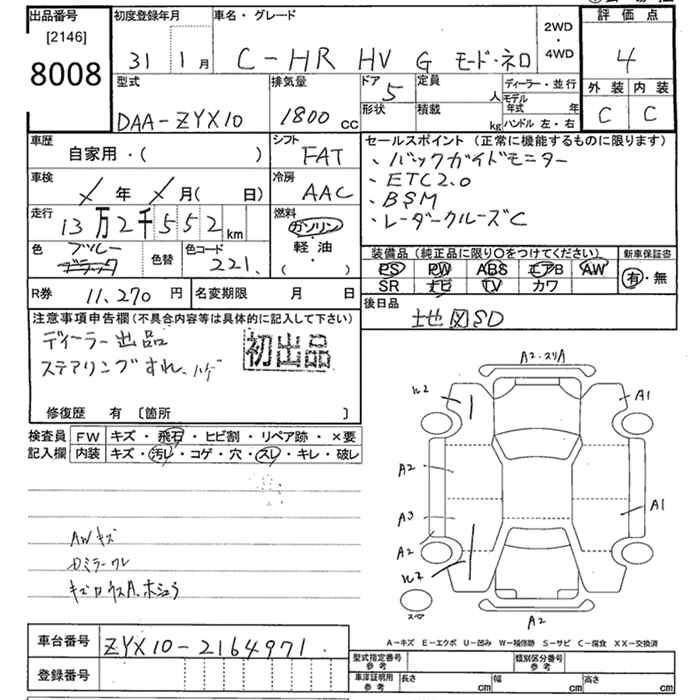 出品番号 初度登録年月 車名・グレード 2WD・4WD 評価点
[2146]
8008 31 1月 C-HR HV G モード・ネロ 4
型式 排気量 ドア 定員 ディーラー・並行 外装 内装
5 人 モデル年式 年
DAA-ZYX10 1800cc 形状 積載 kg ハンドル 左・右 C C
車歴 シフト セールスポイント(正常に機能するものに限ります)
自家用・( ) FAT ・バックガイドモニター
車検 冷房 ・ETC2.0
年 月( 日) AAC ・BSM
走行 燃料 ・レーダークルーズC
13万2千552km ガソリン
色 色替 色コード 軽・油 装備品(純正品に限り○をつけてください) 新車保証書
ブルー 221. ( ) PS PW ABS エアB AW 有・無
ブラック SR ナビ TV カワ
R券 11,270円 名変期限 月 日 後日品
地図SD
注意事項申告欄(不具合内容等は具体的に記入して下さい)
ディーラー出品 初出品
ステアリングすれ、ハゲ
修復歴 有 [箇所 ]
検査員 FW キズ・飛石・ヒビ割・リペア跡・×要
記入欄 内装 キズ・汚レ・コゲ・穴・スレ・キレ・破レ
A2・スリA
ルス A1
A2
A3 A1
A2
ルス
スペア
A2
AWキズ
Dミラーワレ
A-キズ E-エクボ U-凹み W-補修跡 S-サビ C-腐食 XX-交換済
車台番号 ZYX10-2164971.
登録番号
型式指定番号 参考 類別区分番号 参考
車庫証明用 参考 長さ cm 幅 cm 高さ cm